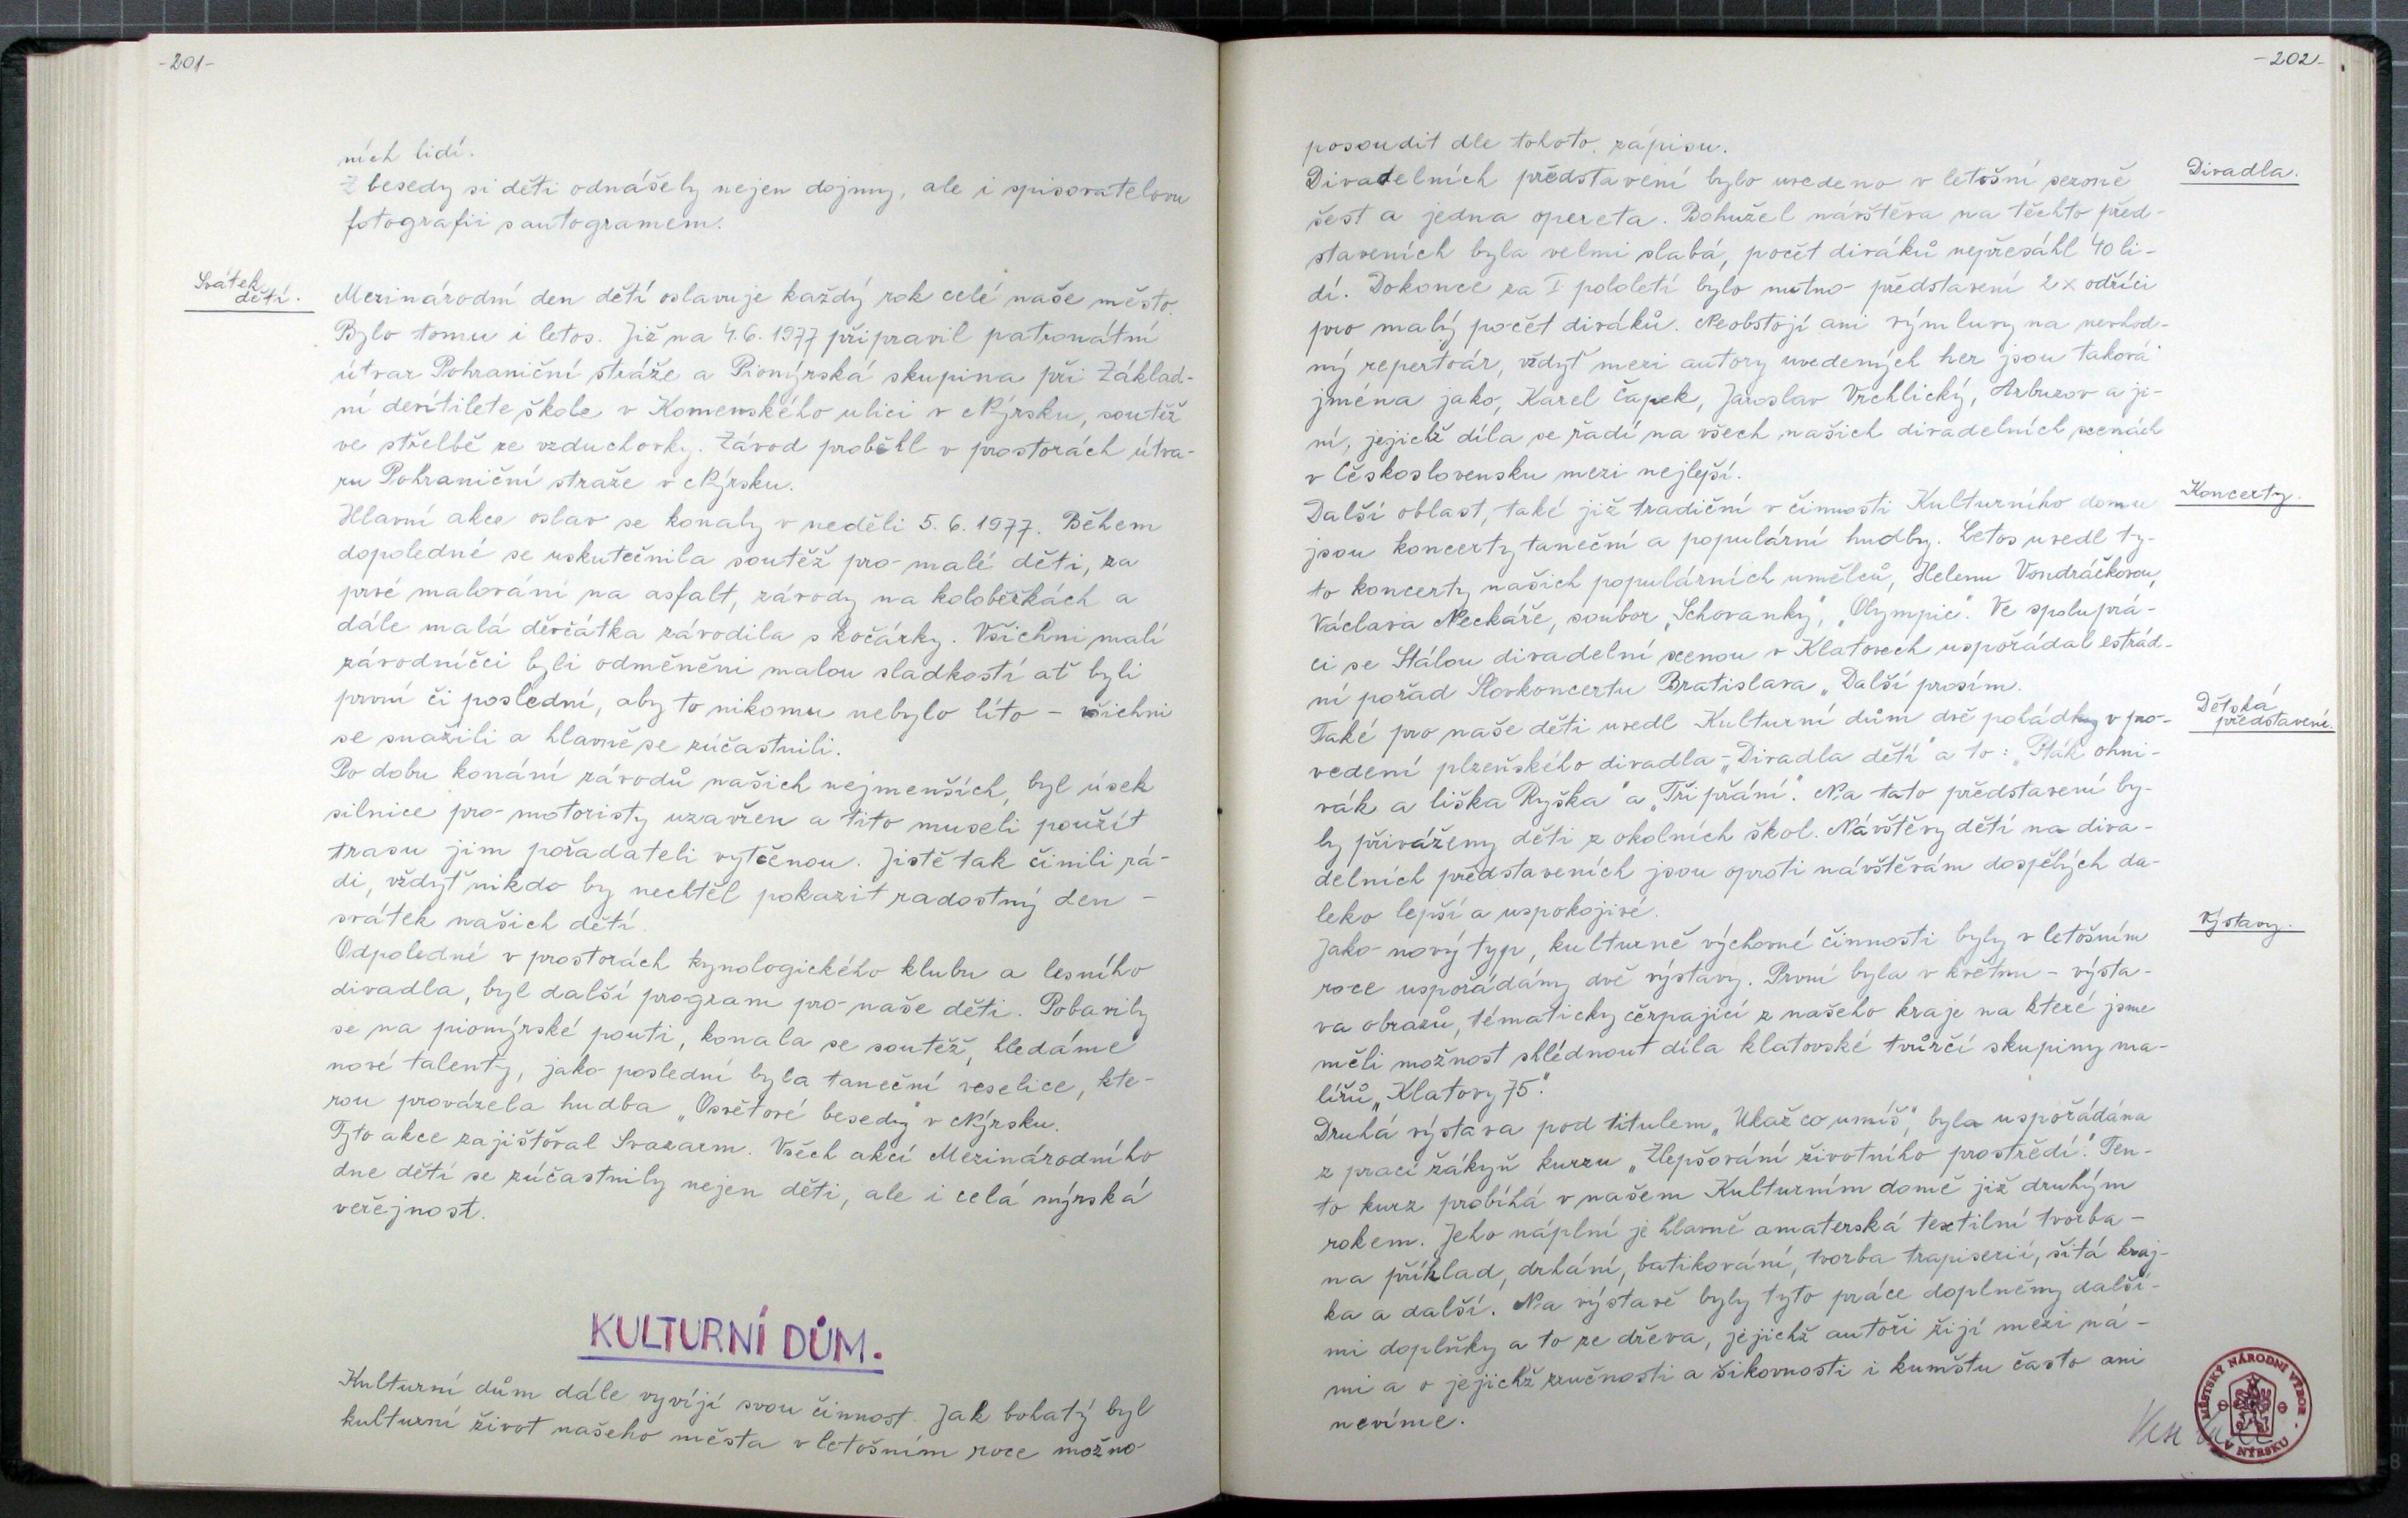 -201-
ních lidí.
Z besedy si děti odnášely nejen dojmy, ale i spisovatelovu
fotografii s autogramem.
Svátek
dětí.
Mezinárodní den dětí oslavuje každý rok celé naše město.
Bylo tomu i letos. Již na 4.6. 1977 připravil patronátní
útvar Pohraniční stráže a Pionýrská skupina při Základ-
ní devítileté škole v Komenského ulici v Nýrsku, soutěž
ve střelbě ze vzduchovky. Závod proběhl v prostorách útva-
ru Pohraniční straže v Nýrsku.
Hlavní akce oslav se konaly v neděli 5. 6. 1977. Během
dopoledne se uskutečnila soutěž pro malé děti, za
prvé malování na asfalt, závody na koloběžkách a
dále malá děvčátka závodila s kočárky. Všichni malí
závodníčci byli odměněni malou sladkostí ať byli
první či poslední, aby to nikomu nebylo líto - všichni
se snažili a hlavně se zúčastnili.
Po dobu konání závodů našich nejmenších, byl úsek
silnice pro motoristy uzavřen a tito museli použít
trasu jim pořadateli vytčenou. Jistě tak činili rá-
di, vždyť nikdo by nechtěl pokazit radostný den -
svátek našich dětí.
Odpoledne v prostorách kynologického klubu a lesního
divadla, byl další program pro naše děti. Pobavily
se na pionýrské pouti, konala se soutěž, hledáme
nové talenty, jako poslední byla taneční veselice, kte-
rou provázela hudba „Osvětové besedy" v Nýrsku.
Tyto akce zajišťoval Svazarm. Všech akcí Mezinárodního
dne dětí se zúčastnily nejen děti, ale i celá nýrská
veřejnost.
KULTURNÍ DŮM.
Kulturní dům dále vyvíjí svou činnost. Jak bohatý byl
kulturní život našeho města v letošním roce možno
-202-
posoudit dle tohoto zápisu.
Divadla.
Divadelních představení bylo uvedeno v letošní sezoně
šest a jedna opereta. Bohužel návštěva na těchto před-
staveních byla velmi slabá, počet diváků nepřesáhl 40 li-
dí. Dokonce za I. pololetí bylo nutno představení 2x odříci
pro malý počet diváků. Neobstojí ani výmluvy na nevhod-
ný repertoár, vždyť mezi autory uvedených her jsou taková
jména jako, Karel Čapek, Jaroslav Vrchlický, Arbuzov a ji-
ní, jejichž díla se řadí na všech našich divadelních scenách
v Československu mezi nejlepší.
Koncerty.
Další oblast, také již tradiční v činnosti Kulturního domu
jsou koncerty taneční a populární hudby. Letos uvedl ty-
to koncerty našich populárních umělců, Helenu Vondráčkovou,
Václava Neckáře, soubor „Schovanky", „Olympic". Ve spoluprá-
ci se Stálou divadelní scenou v Klatovech uspořádal estrád-
ní pořad Slovkoncertu Bratislava „Další prosím.
Dětská
představení.
Také pro naše děti uvedl Kulturní dům dvě pohádky v pro-
vedení plzeňského divadla - „Divadla dětí" a to: „Pták ohni-
vák a liška Ryška" a „Tři přání". Na tato představení by-
ly přiváženy děti z okolních škol. Návštěvy dětí na diva-
delních představeních jsou oproti návštěvám dospělých da-
leko lepší a uspokojivé.
Výstavy.
Jako nový typ, kulturně výchovné činnosti byly v letošním
roce uspořádány dvě výstavy. První byla v květnu - výsta-
va obrazů, tématicky čerpající z našeho kraje na které jsme
měli možnost shlédnout díla klatovské tvůrčí skupiny ma-
lířů „Klatovy 75".
Druhá výstava pod titulem „Ukaž co umíš", byla uspořádána
z prací žákyň kurzu „Zlepšování životního prostředí". Ten-
to kurz probíhá v našem Kulturním domě již druhým
rokem. Jeho náplní je hlavně amaterská textilní tvorba -
na příklad, drhání, batikování, tvorba trapiserií, šitá kraj-
ka a další. Na výstavě byly tyto práce doplněny další-
mi doplňky a to ze dřeva, jejichž autoři žijí mezi ná-
mi a o jejichž zručnosti a šikovnosti i kumštu často ani
nevíme.
MĚSTSKÝ NÁRODNÍ VÝBOR
V NÝRSKU